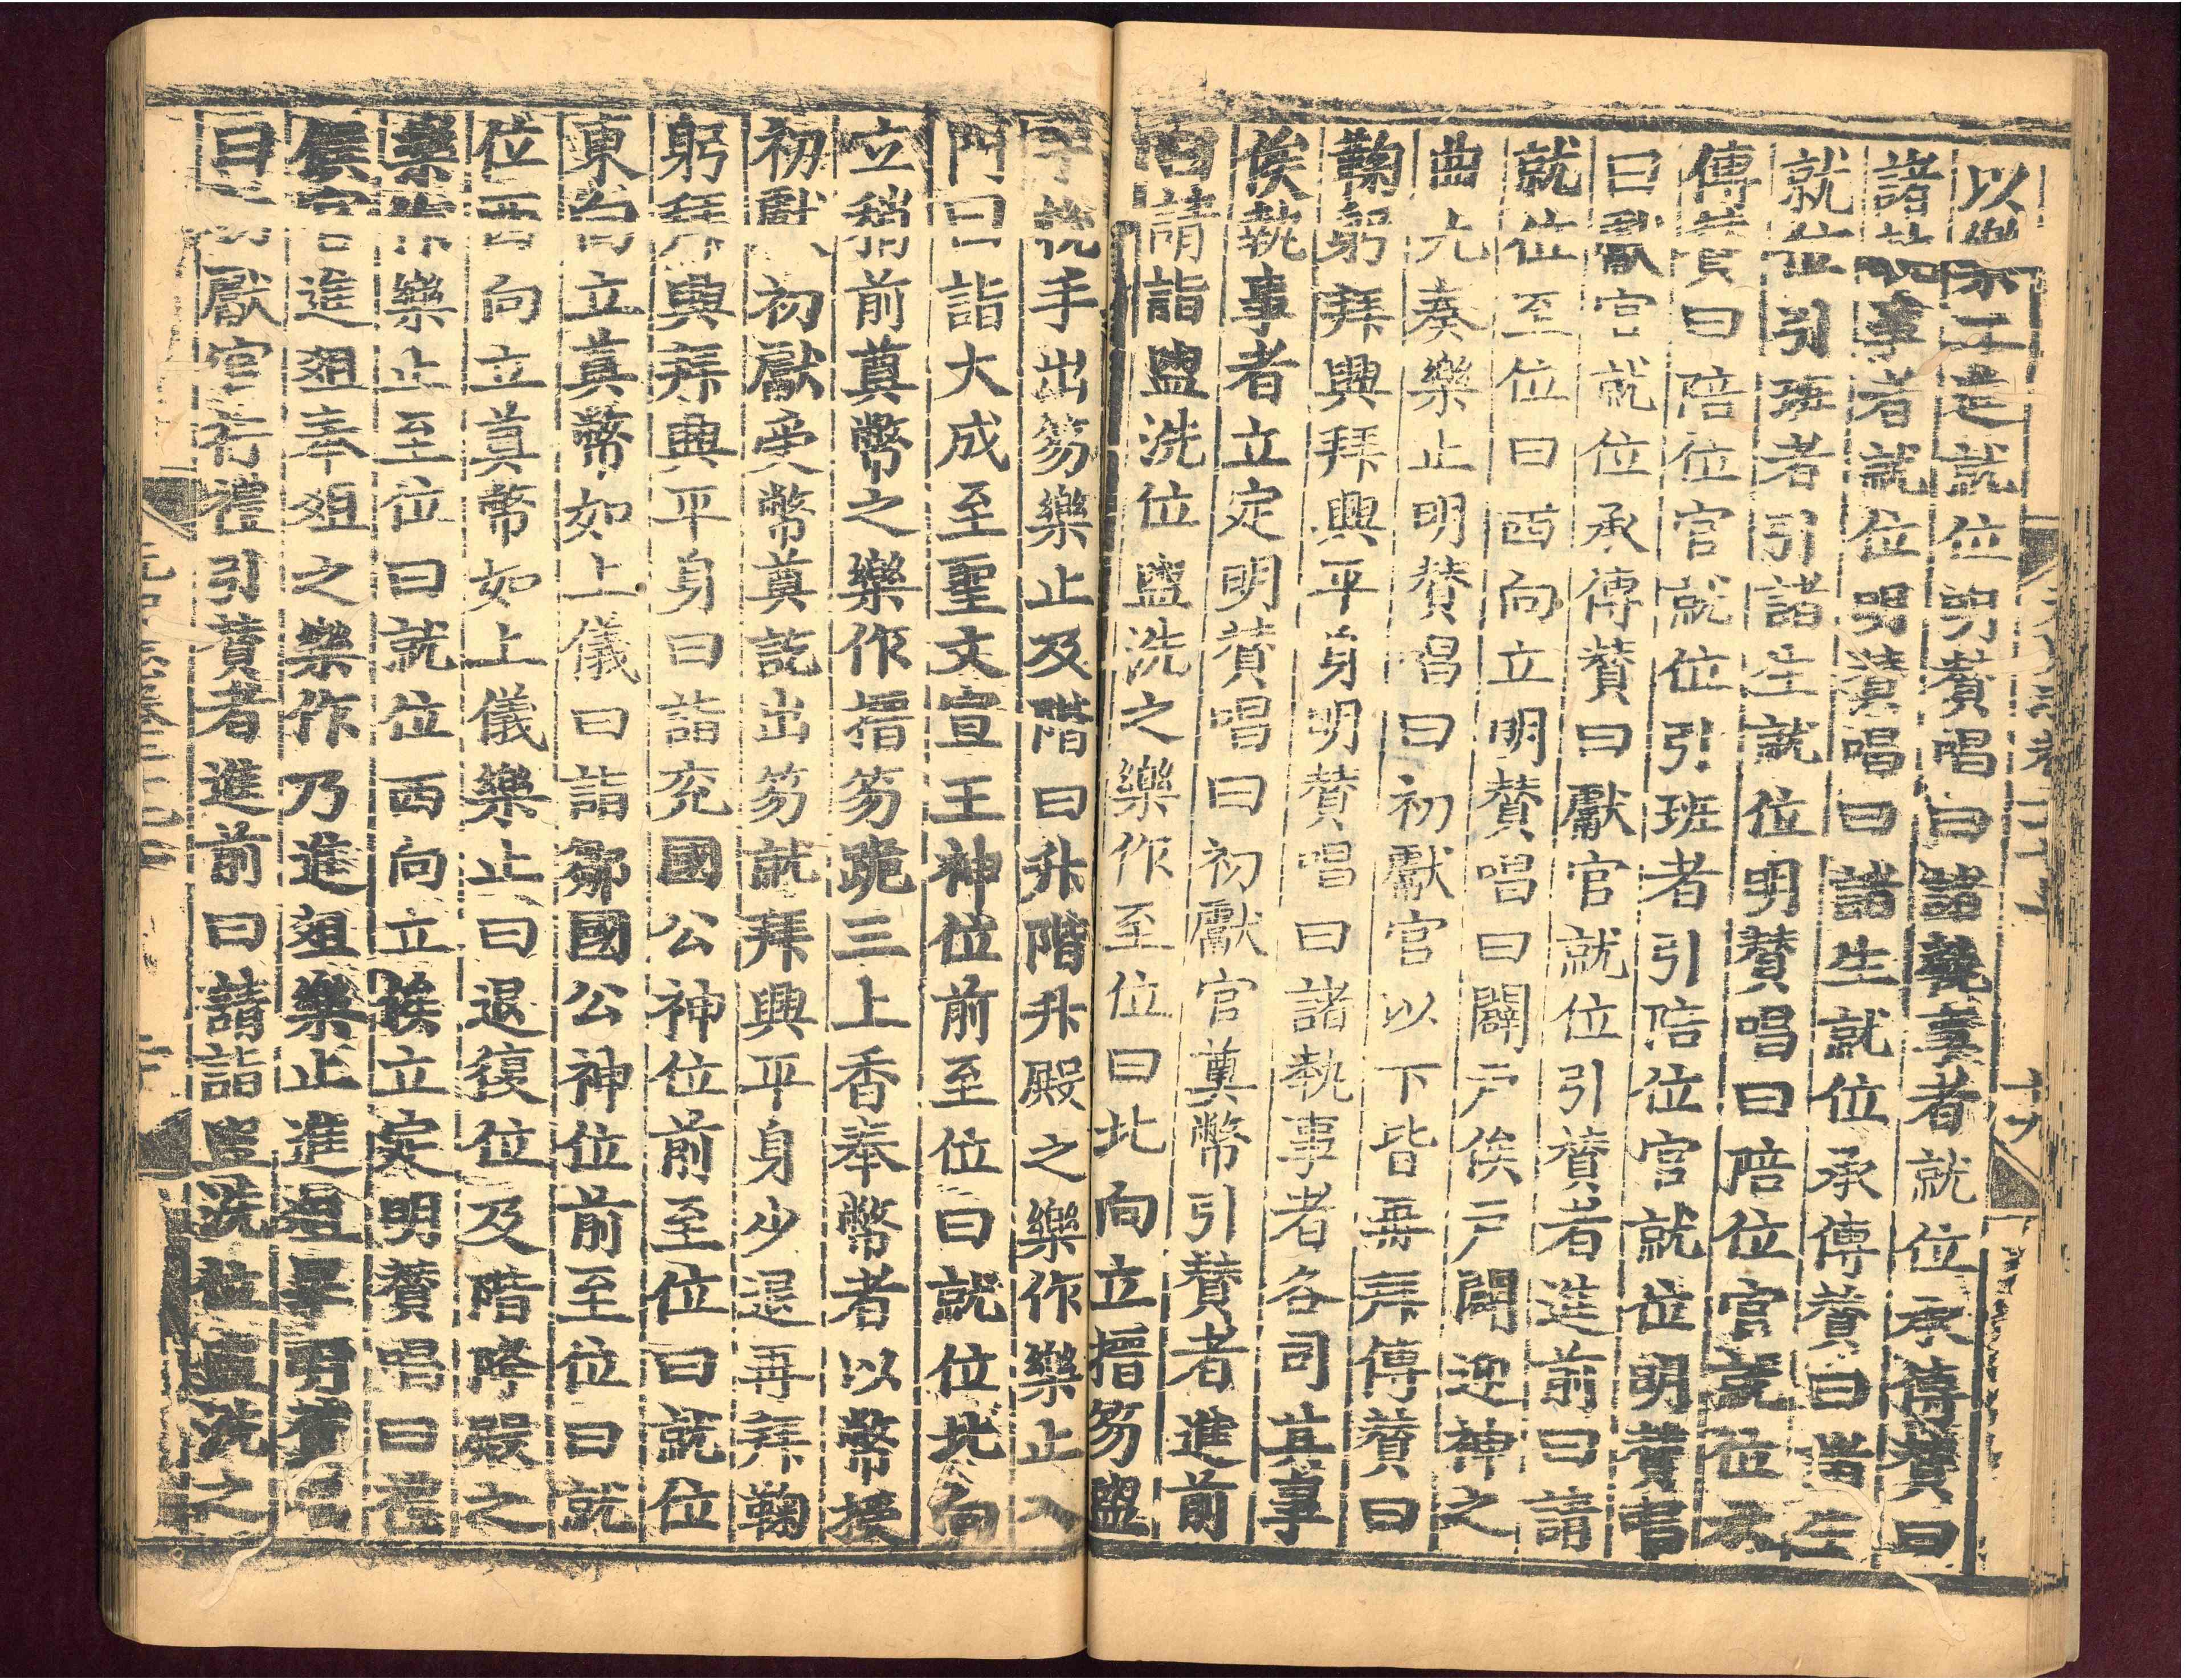 以次而進就位明賛唱曰諸執事者就位承傳賛曰
諸執事者就位明賛唱曰諸生就位承傳賛曰諸生
就位引班者引諸生就位明賛唱曰陪位官就位承
傳賛曰陪位官就位引班者引陪位官就位明賛唱
曰獻官就位承傳賛曰獻官就位引賛者進前曰請
就位至位曰西向立明賛唱曰闢戶俟戶闢迎神之
曲九奏樂止明賛唱曰初獻官以下皆再拜傳賛曰
鞠躬拜興拜興平身明賛唱曰諸執事者各司其事
俟執事者立定明賛唱曰初獻官奠幣引賛者進前
曰請詣盥洗位盥洗之樂作至位曰北向立搢笏盥
手帨手出笏樂止及階曰升階升殿之樂作樂止入
門曰詣大成至聖文宣王神位前至位曰就位北向
立稍前奠幣之樂作搢笏跪三上香奉幣者以幣授
初獻初獻受幣奠訖出笏就拜興平身少退再拜鞠
躬拜興拜興平身曰詣兖國公神位前至位曰就位
東向立奠幣如上儀曰詣鄒國公神位前至位曰就
位西向立奠幣如上儀樂止曰退復位及階降殿之
樂作樂止至位曰就位西向立俟立定明賛唱曰禮
饌官進俎奉俎之樂作乃進俎樂止進俎畢明賛唱
曰初獻官行禮引賛者進前曰請詣盥洗位盥洗之